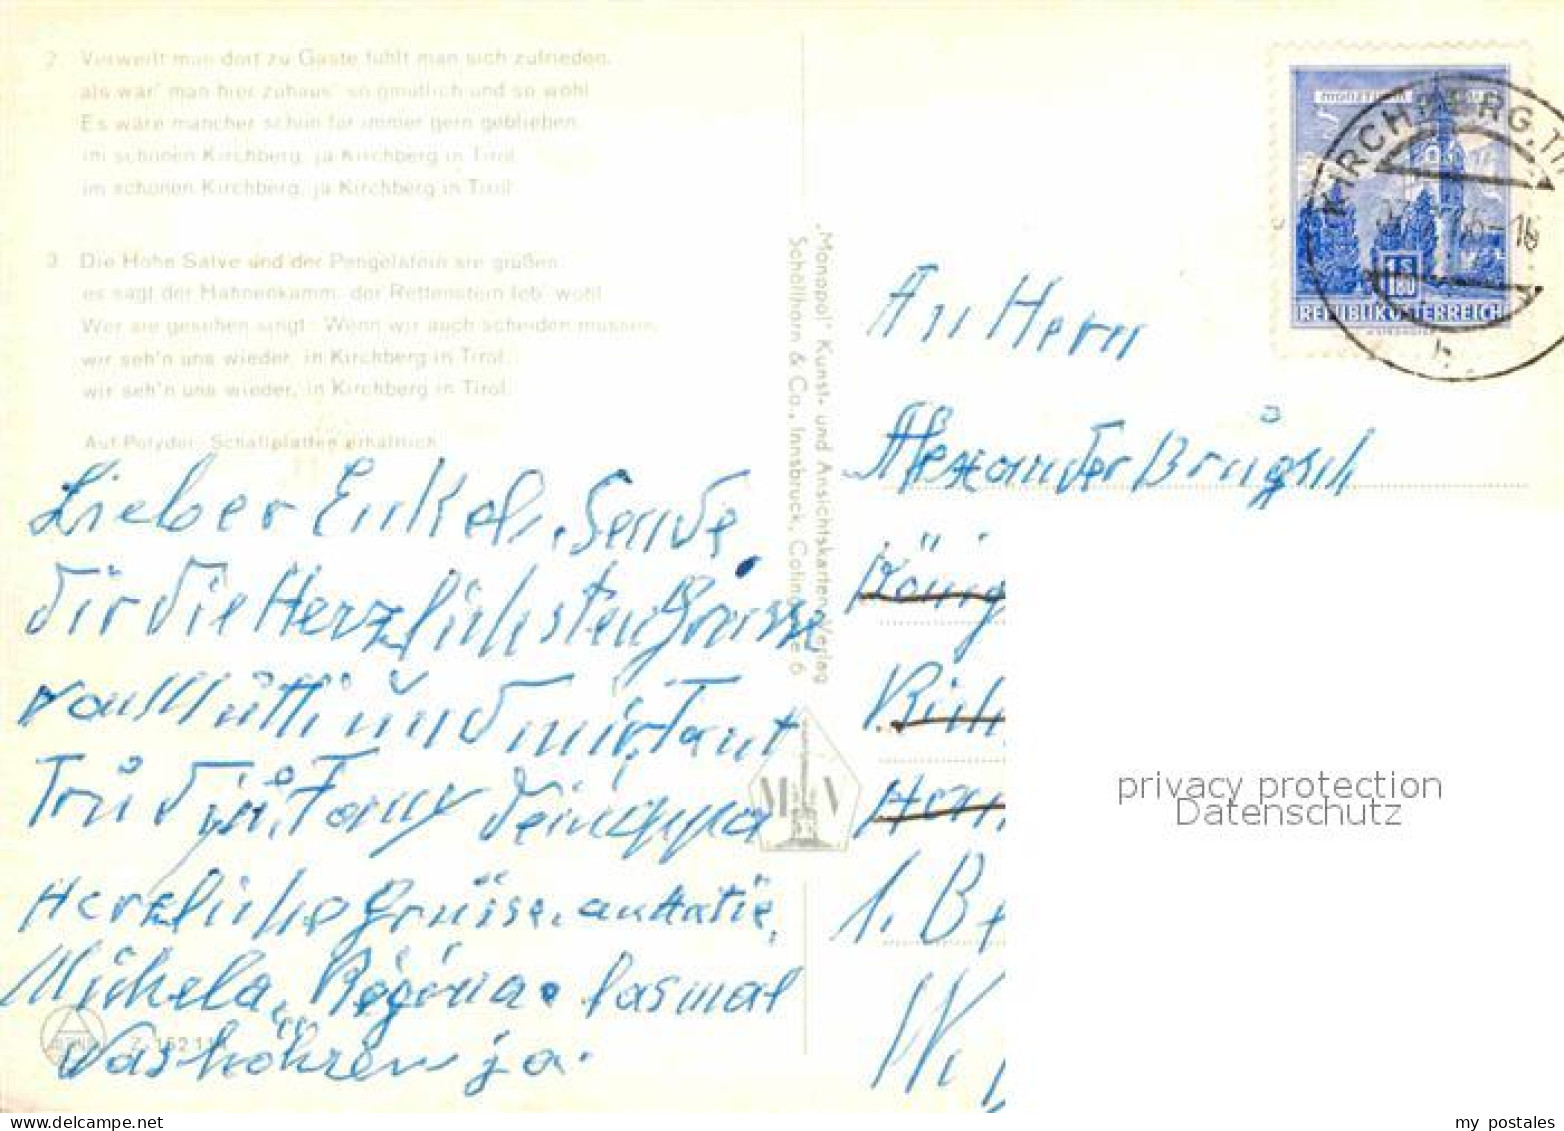 2 Verweilt man dort zu Gaste fühlt man sich zufrieden,
als wär' man hier zuhaus' so gmütlich und so wohl
Es wäre mancher schon für immer gern geblieben,
im schönen Kirchberg, ja Kirchberg in Tirol
im schönen Kirchberg, ja Kirchberg in Tirol.
3 Die Hohe Salve und der Pengelstein sie grüßen
es sagt der Hahnenkamm, der Rettenstein leb' wohl
Wer sie gesehen singt: Wenn wir auch scheiden müssen,
wir seh'n uns wieder, in Kirchberg in Tirol,
wir seh'n uns wieder, in Kirchberg in Tirol.
Auf Polydor-Schallplatten erhältlich
Lieber Enkel, Sende
dir die Herzlichsten Grüsse
von Mutti und mir, Tant
Trud Tony dein Oppa
Herzliche Grüsse an Katie,
Michela,
las mal
was hören ja.
Z. 152 11
"Monopol" Kunst- und Ansichtskarten-Verlag
Schöllhorn & Co., Innsbruck, 6
M V
KIRCHBERG, TI
16
b
1 S 80
REPUBLIK ÖSTERREICH
An Hern
Alexander Brügsch
König
Rich
1. Be
W.
privacy protection
Datenschutz
www.delcampe.net
my_postales